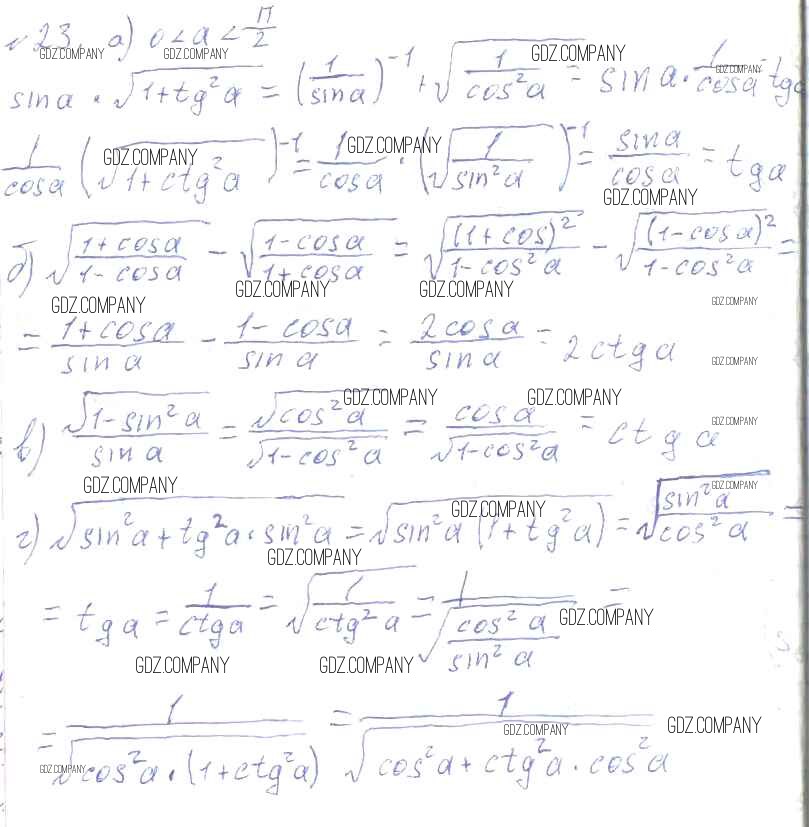 №23. а) 0 < a < π/2
GDZ.COMPANY GDZ.COMPANY GDZ.COMPANY GDZ.COMPANY
sin a · √(1+tg²a) = (1/sin a)⁻¹ + √(1/cos²a) = sin a · 1/cos a = tg a
1/cos a (√(1+ctg²a))⁻¹ = 1/cos a · (√(1/sin²a))⁻¹ = sin a/cos a = tg a
GDZ.COMPANY GDZ.COMPANY GDZ.COMPANY
б) √((1+cos a)/(1-cos a)) - √((1-cos a)/(1+cos a)) = √((1+cos)²/(1-cos²a)) - √((1-cos a)²/(1-cos²a)) =
GDZ.COMPANY GDZ.COMPANY GDZ.COMPANY GDZ.COMPANY
= (1+cos a)/sin a - (1-cos a)/sin a = 2cos a/sin a = 2ctg a
GDZ.COMPANY
GDZ.COMPANY GDZ.COMPANY GDZ.COMPANY
в) √(1-sin²a)/sin a = √(cos²a)/√(1-cos²a) = cos a/√(1-cos²a) = ctg a
GDZ.COMPANY GDZ.COMPANY GDZ.COMPANY
г) √(sin²a+tg²a·sin²a) = √(sin²a(1+tg²a)) = √(sin²a/cos²a) =
GDZ.COMPANY GDZ.COMPANY
= tg a = 1/ctg a = √(1/ctg²a) = 1/√(cos²a/sin²a) =
GDZ.COMPANY GDZ.COMPANY GDZ.COMPANY
= 1/√(cos²a·(1+ctg²a)) = 1/√(cos²a+ctg²a·cos²a)
GDZ.COMPANY GDZ.COMPANY GDZ.COMPANY